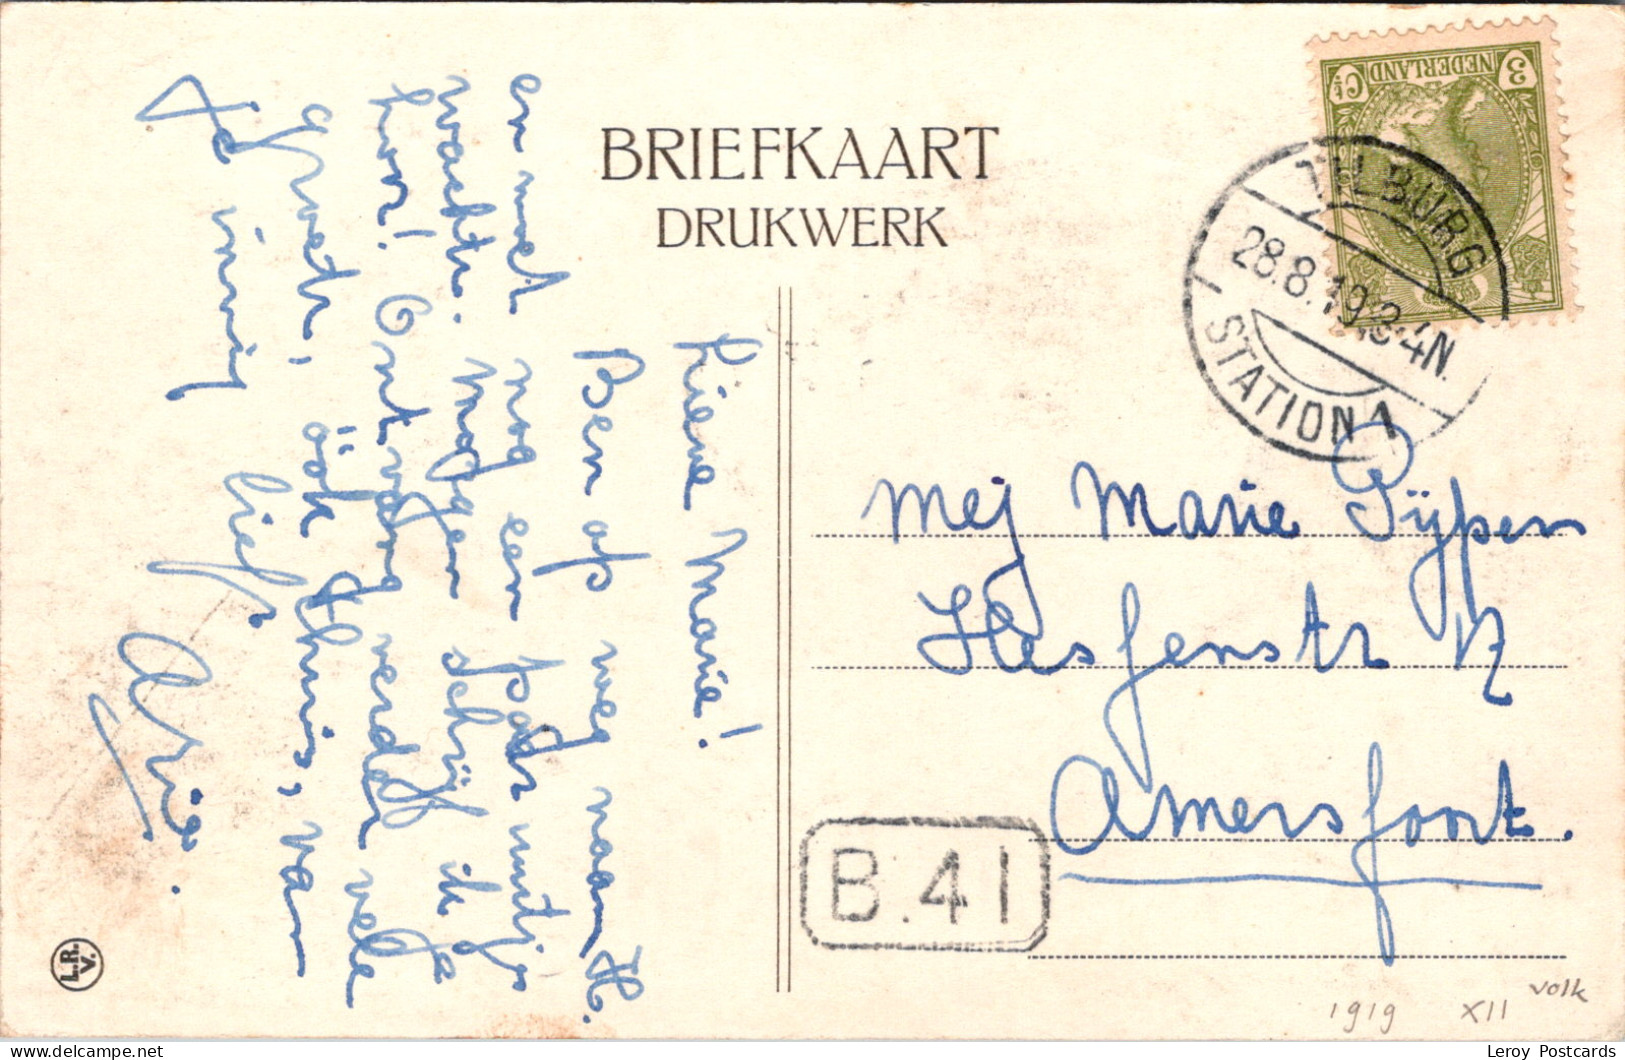 BRIEFKAART
DRUKWERK
NEDERLAND
3 Ct
TILBURG
28.8.19.3-4N.
STATION 1
Lieve Marie!
Ben op weg naar H.
er met nog een paar mutjs
wachtr. Mogen schrijf ik je
hoor! Ontvang verder vele
groetr, ook thuis, van
Je innig lief
Arie.
Mej Marie Pijpers
Amersfoort.
B.41
L.R.
V.
1919 XII volk
Leroy Postcards